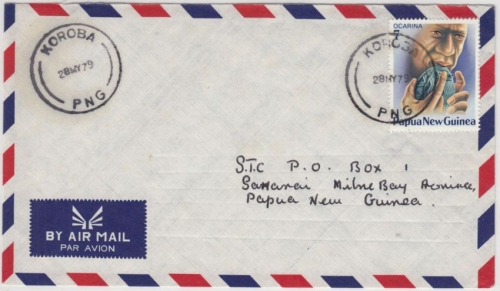 KOROBA
28 MY 79
PNG
KOROBA
28 MY 79
PNG
OCARINA
Papua New Guinea
S.T.C P.O. BOX 1
Milne Bay
Papua New Guinea.
BY AIR MAIL
PAR AVION